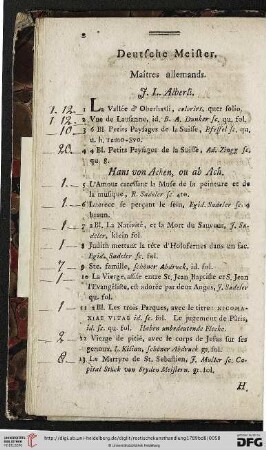 8
Deutsche Meister.
Maîtres allemands.
J. L. Aberli.
1. 12. 1 La Vallée d'Oberhasli, coloriée, quer folio.
1. 12. 2 Vue de Lausanne, id. B. A. Dunker sc. qu. fol.
10. 3 6 Bl. Petits Paysages de la Suisse, Pfeffel sc. qu.
u. h.
20. 4 4 Bl. Petits Paysages de la Suisse, Ad. Zingg sc.
qu. 8.
Hans von Achen, ou ab Ach.
1 5 L'Amour caressant la Muse de la peinture et de
la musique, R. Sadeler sc. 4to.
1 6 Lucrece se perçant le sein, Egid. Sadeler sc. 4
braun.
1 7 2 Bl. La Nativité, et la Mort du Sauveur, J. Sa-
deler, klein fol.
1 8 Judith mettant la tête d'Holofernes dans un sac.
Egid. Sadeler sc. fol.
7 9 Ste. famille, schöner Abdruck, id. fol.
1 10 La Vierge, assise entre St. Jean Baptiste et S. Jean
l'Evangéliste, est adorée par deux Anges, J. Sadeler
qu. fol.
1 11 2 Bl. Les trois Parques, avec le titre:
VITAE id. sc. fol. Le jugement de Pâris,
id. sc. qu. fol. Haben unbedeutende Flecke.
2 12 Vierge de pitié, avec le corps de Jésus sur ses
genoux, L. Kilian, schöner Abdruck gr. fol.
8 13 Le Martyre de St. Sebastien, J. Muller sc. Ca-
pital Stück von beyden Meistern. gr. fol.
H.
UNIVERSITÄTS-
BIBLIOTHEK
HEIDELBERG
© Universitätsbibliothek Heidelberg